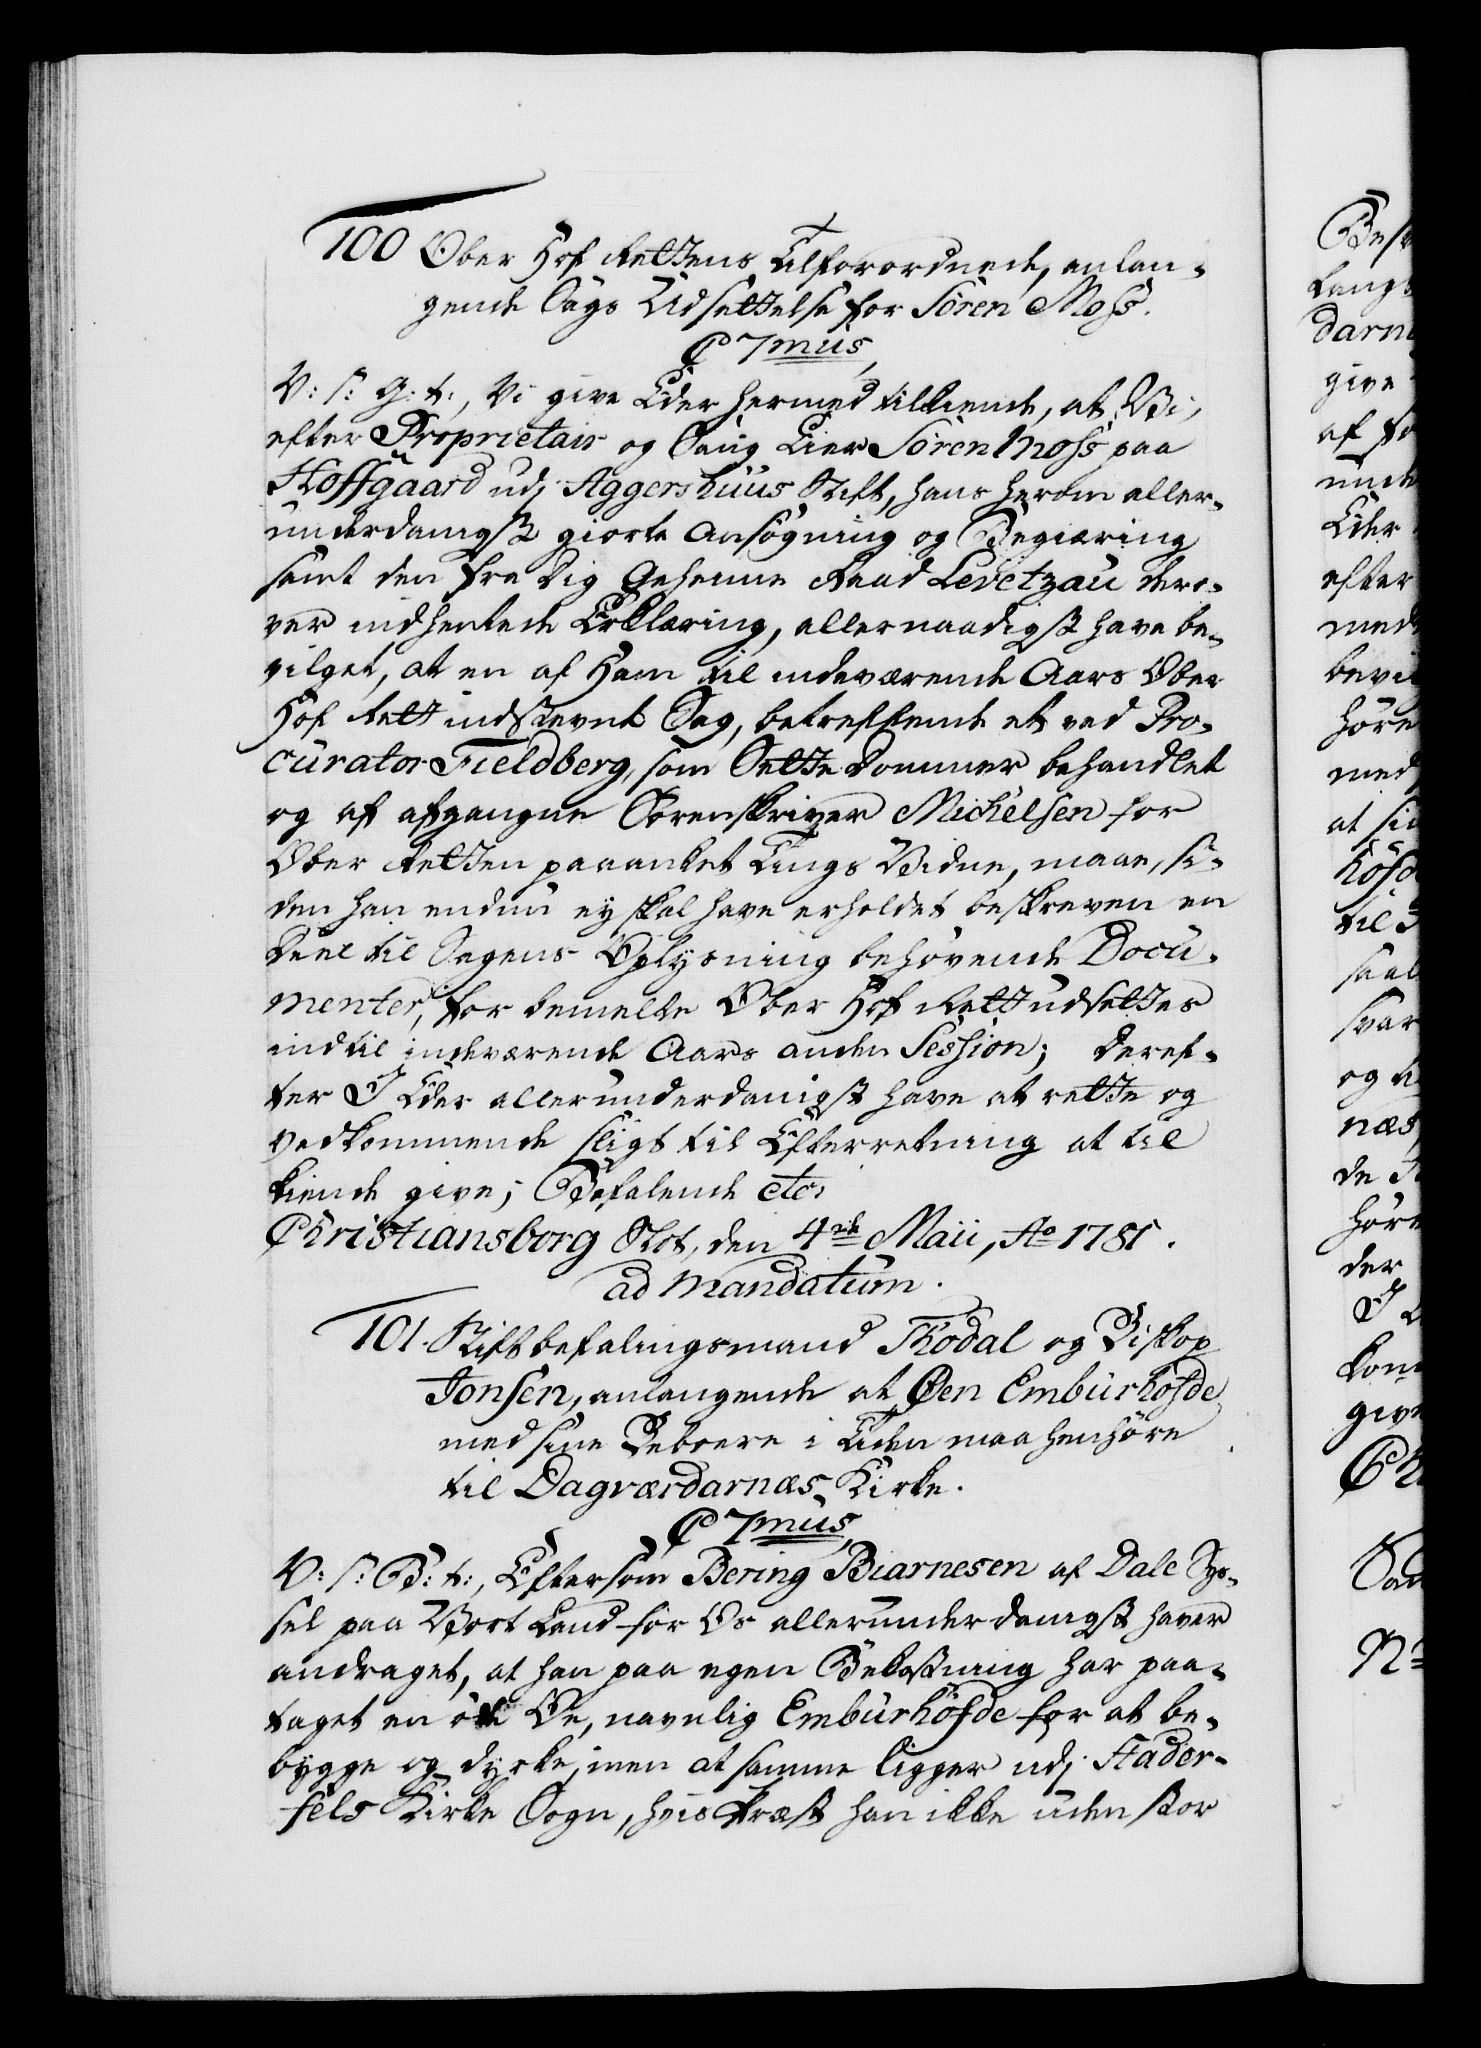 100 Ober Hof Rettens Tilforordnede, anlan-
gende Sags Udsettelse for Sören Moss.
C 7mus,
V: S: G: t:, Vi give Eder hermed tilkiende, at Vi,
efter Proprietair og Saug Eier Sören Moss paa
Hoffgaard udj Aggershuus Stift, hans herom aller-
underdanigst giorte Ansögning og Begiæring
samt den fra Dig Geheime Raad Levetzau dero-
ver indhentede Erklæring, allernaadigst have be-
vilget, at en af Ham til indeværende Aars Ober
Hof Rett indstevnt Sag, betreffende et ved Pro-
curator Fieldberg, som Sætte Dommer behandlet
og af afgangne Sorenskriver Michelsen for
Ober Retten paaanket Tings Vidne, maae, si-
den han endnu ey skal have erholdet beskreven en
Deel til Sagens Oplysning behøvende Docu-
menter, for bemelte Ober Hof Rett udsettes
indtil indeværende Aars anden Session; deref-
ter I Eder allerunderdanigst have at rette og
vedkommende sligt til Efterretning at til
kiende give; Befalende etc.
Christiansborg Slot, den 4de Maii, Ao 1781.
ad Mandatum.
101. Stiftbefalingsmand Thodal og Biskop
Jonsen, anlangende at Øen Emburhöfde
med sine Beboere i Tiden maa henhöre
til Dagværdarnæs Kirke.
C 7mus,
V: S: B: t:, Eftersom Bering Biarnesen af Dale Sys-
sel paa Vort Land for Os allerunderdanigst haver
andraget, at han paa egen Bekostning har paa-
taget en öde Øe, navnlig Emburhöfde for at be-
bygge og dyrke, men at samme ligger udj Stader-
fels Kirke Sogn, hvis Præst han ikke uden stor